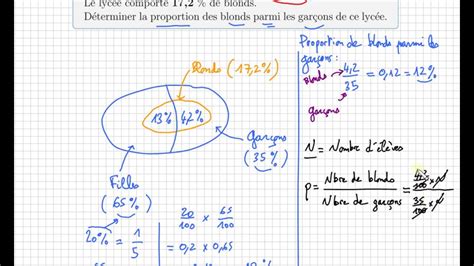 Le lycée comporte 17,2 % de blonds.
Déterminer la proportion des blonds parmi les garçons de ce lycée.
Blonds (17,2%)
13% 4,2%
Garçons
(35%)
Filles
(65%)
20% = 1/5
20/100 × 65/100
= 0,2 × 0,65
Proportion de blonds parmi les
garçons :
Blonds 4,2/35 = 0,12 = 12%
garçons
N = Nombre d'élèves
P = Nbre de blonds / Nbre de garçons = 4,2/100 × N / 35/100 × N